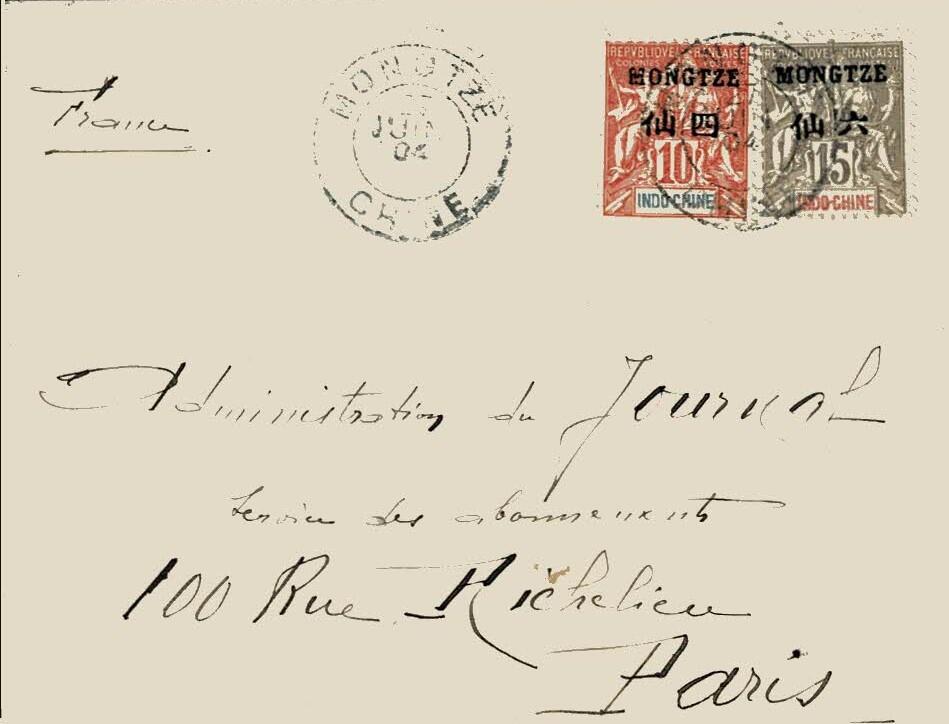 France
MONGTZE
JUIN
04
CHINE
REPVBLIQVE FRANÇAISE
COLONIES POSTES
MONGTZE
仙四
10
INDO-CHINE
REPVBLIQVE FRANÇAISE
MONGTZE
仙六
15
INDO-CHINE
04
Administration du Journal
Service des abonnements
100 Rue Richelieu
Paris